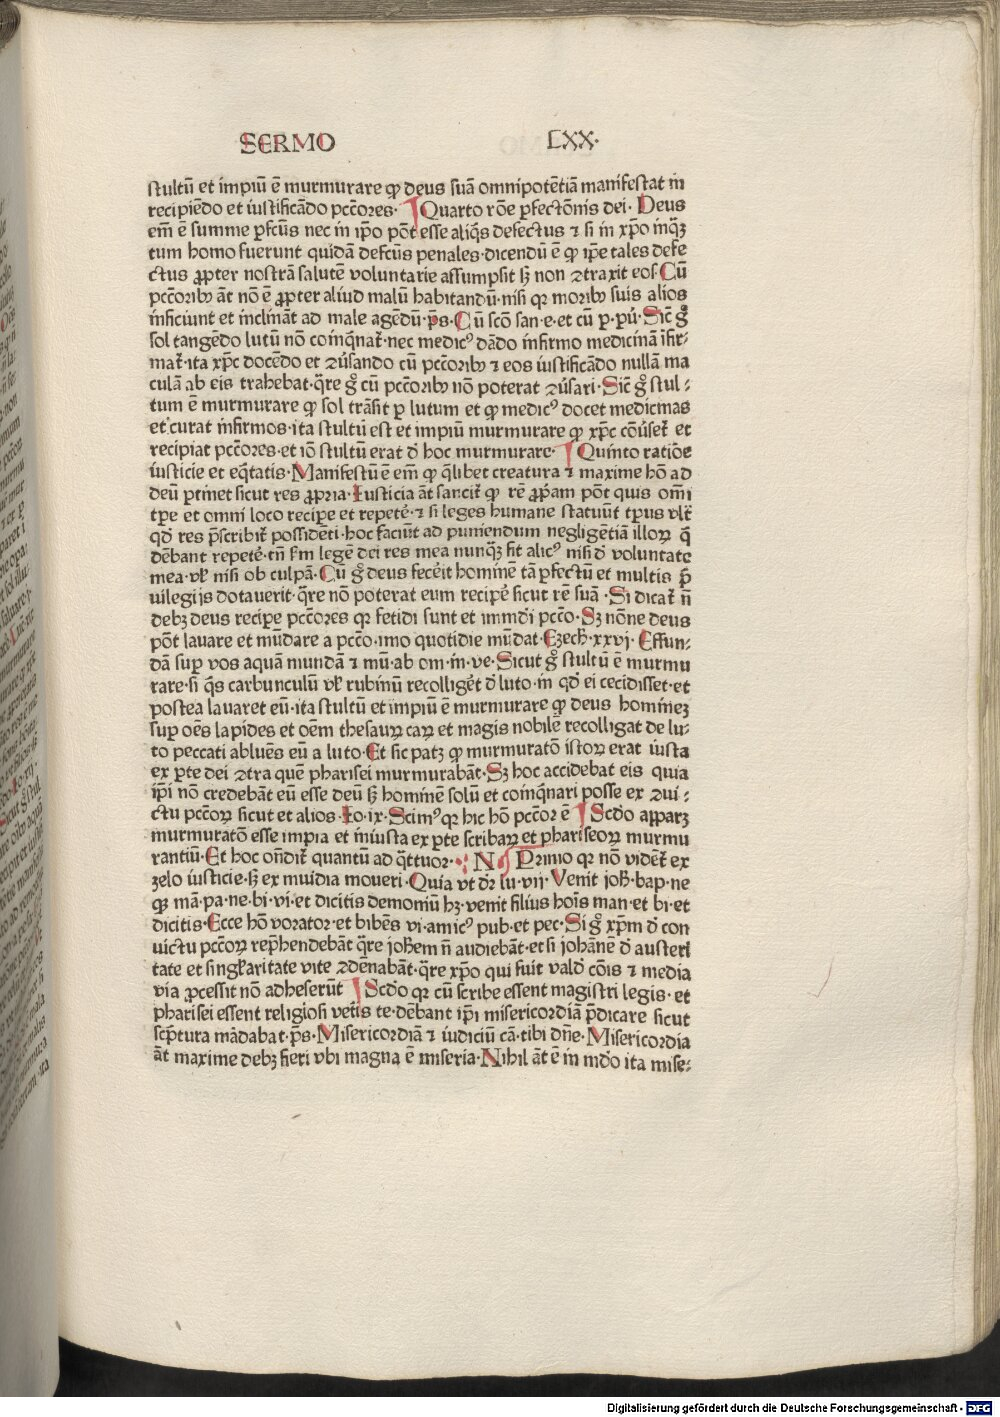 SERMO LXX·
stultū et impiū ē murmurare ꝙ deus suā omnipotētiā manifestat in
recipiēdo et iustificādo pccōres· Quarto rōe ꝑfectōnis dei· Deus
em̄ ē summe ꝑfcūs nec in ip̄o pōt esse aliq̄s defectus ⁊ si in xp̄o inqꝫ
tum homo fuerunt quidā defcūs penales·dicendū ē ꝙ ip̄e tales defe
ctus ꝓpter nostrā salutē voluntarie assumpsit sꝫ non ꝯtraxit eos·Cū
pccōribꝰ āt nō ē ꝓpter aliud malū habitandū·nisi qꝛ moribꝰ suis alios
inficiunt et inclināt ad male agēdū·p̄s·Cū scō san·e·et cū p·pū·Sic̄ gͦ
sol tangēdo lutū nō coinq̄nat᷑·nec medicꝰ dādo infirmo medicinā īfir⸗
mat᷑·ita xp̄c docēdo et ꝯūsando cū pccōribꝰ ⁊ eos iustificādo nullā ma
culā ab eis trahebat·q̄re gͦ cū pccōribꝰ nō poterat ꝯūsari·Sic̄ gͦ stul⸗
tum ē murmurare ꝙ sol trāsit ꝑ lutum et ꝙ medicꝰ docet medicinas
et curat infirmos·ita stultū est et impiū murmurare ꝙ xp̄c cōūset᷑ et
recipiat pccōres·et iō stultū erat d̄ hoc murmurare· Quinto ratiōe
iusticie et eq̄tatis·Manifestū ē em̄ ꝙ q̄libet creatura ⁊ maxime hō ad
deū ꝑtinet sicut res ꝓpria·Iusticia āt sancit᷑ ꝙ rē ꝓp̄am pōt quis om̄i
tꝑe et omni loco recipe et repete᷑·⁊ si leges humane statuūt tꝑus vlr̄
qd̄ res p̄scribit᷑ possidēti·hoc faciūt ad puniendum negligētiā illoꝝ q̄
dēbant repete᷑·tn̄ s̄m legē dei res mea nunqꝫ fit alicꝰ nisi d̄ voluntate
mea·vl̄ nisi ob culpā·Cū gͦ deus fecēit hominē tā ꝑfectū et multis p̄
uilegijs dotauerit·q̄re nō poterat eum recipe᷑ sicut rē suā·Si dicat᷑ n̄
debꝫ deus recipe pccōres qꝛ fetidi sunt et immd̄i pccō·Sꝫ nōne deus
pōt lauare et mūdare a pccō·imo quotidie mūdat·Ezech̄·xxvi·Effun⸗
dā suꝑ vos aquā mundā ⁊ mū·ab om·in·ve·Sicut gͦ stultū ē murmu
rare·si q̄s carbunculū vl̄ rubinū recolliget᷑ d̄ luto·in qd̄ ei cecidisset·et
postea lauaret eū·ita stultū et impiū ē murmurare ꝙ deus hominez
suꝑ oēs lapides et oēm thesauꝝ caꝝ et magis nobilē recolligat de lu⸗
to peccati abluēs eū a luto·Et sic patꝫ ꝙ murmuratō istoꝝ erat iusta
ex ꝑte dei ꝯtra quē pharisei murmurabāt·Sꝫ hoc accidebat eis quia
ip̄i nō credebāt eū esse deū sꝫ hominē solū et coinq̄nari posse ex ꝯui⸗
ctu pccōꝝ sicut et alios·Io·ix·Scimꝰ qꝛ hic hō pccōr ē Scd̄o apparꝫ
murmuratō esse impia et iniusta ex ꝑte scribaꝝ et phariseoꝝ murmu
rantiū·Et hoc on̄dit᷑ quantū ad q̄ttuor· N· Primo qꝛ nō videt᷑ ex
zelo iusticie·sꝫ ex inuidia moueri·Quia vt dr̄ lu·vij·Venit joh̄·bap·ne
qꝫ mā·pa·ne·bi·vi·et dicitis demoniū hꝫ·venit filius hois man·et bi·et
dicitis·Ecce hō vorator·et bibēs vi·amicꝰ pub·et pec·Si gͦ xp̄m d̄ con
uictu pccōꝝ rep̄hendebāt q̄re joh̄em n̄ audiebāt·et si johānē d̄ austeri
tate et singl̄aritate vite ꝯdēnabāt·q̄re xp̄o qui fuit vald̄ cōis ⁊ media
via ꝓcessit nō adheserūt Scd̄o qꝛ cū scribe essent magistri legis·et
pharisei essent religiosi vet᷑is te·dēbant ip̄i misericordiā p̄dicare sicut
sc̄ptura mādabat·p̄s·Misericordiā ⁊ iudiciū cā·tibi dn̄e·Misericordia
āt maxime debꝫ fieri vbi magna ē miseria·Nihil āt ē in mdō ita mise⸗
Digitalisierung gefördert durch die Deutsche Forschungsgemeinschaft - DFG